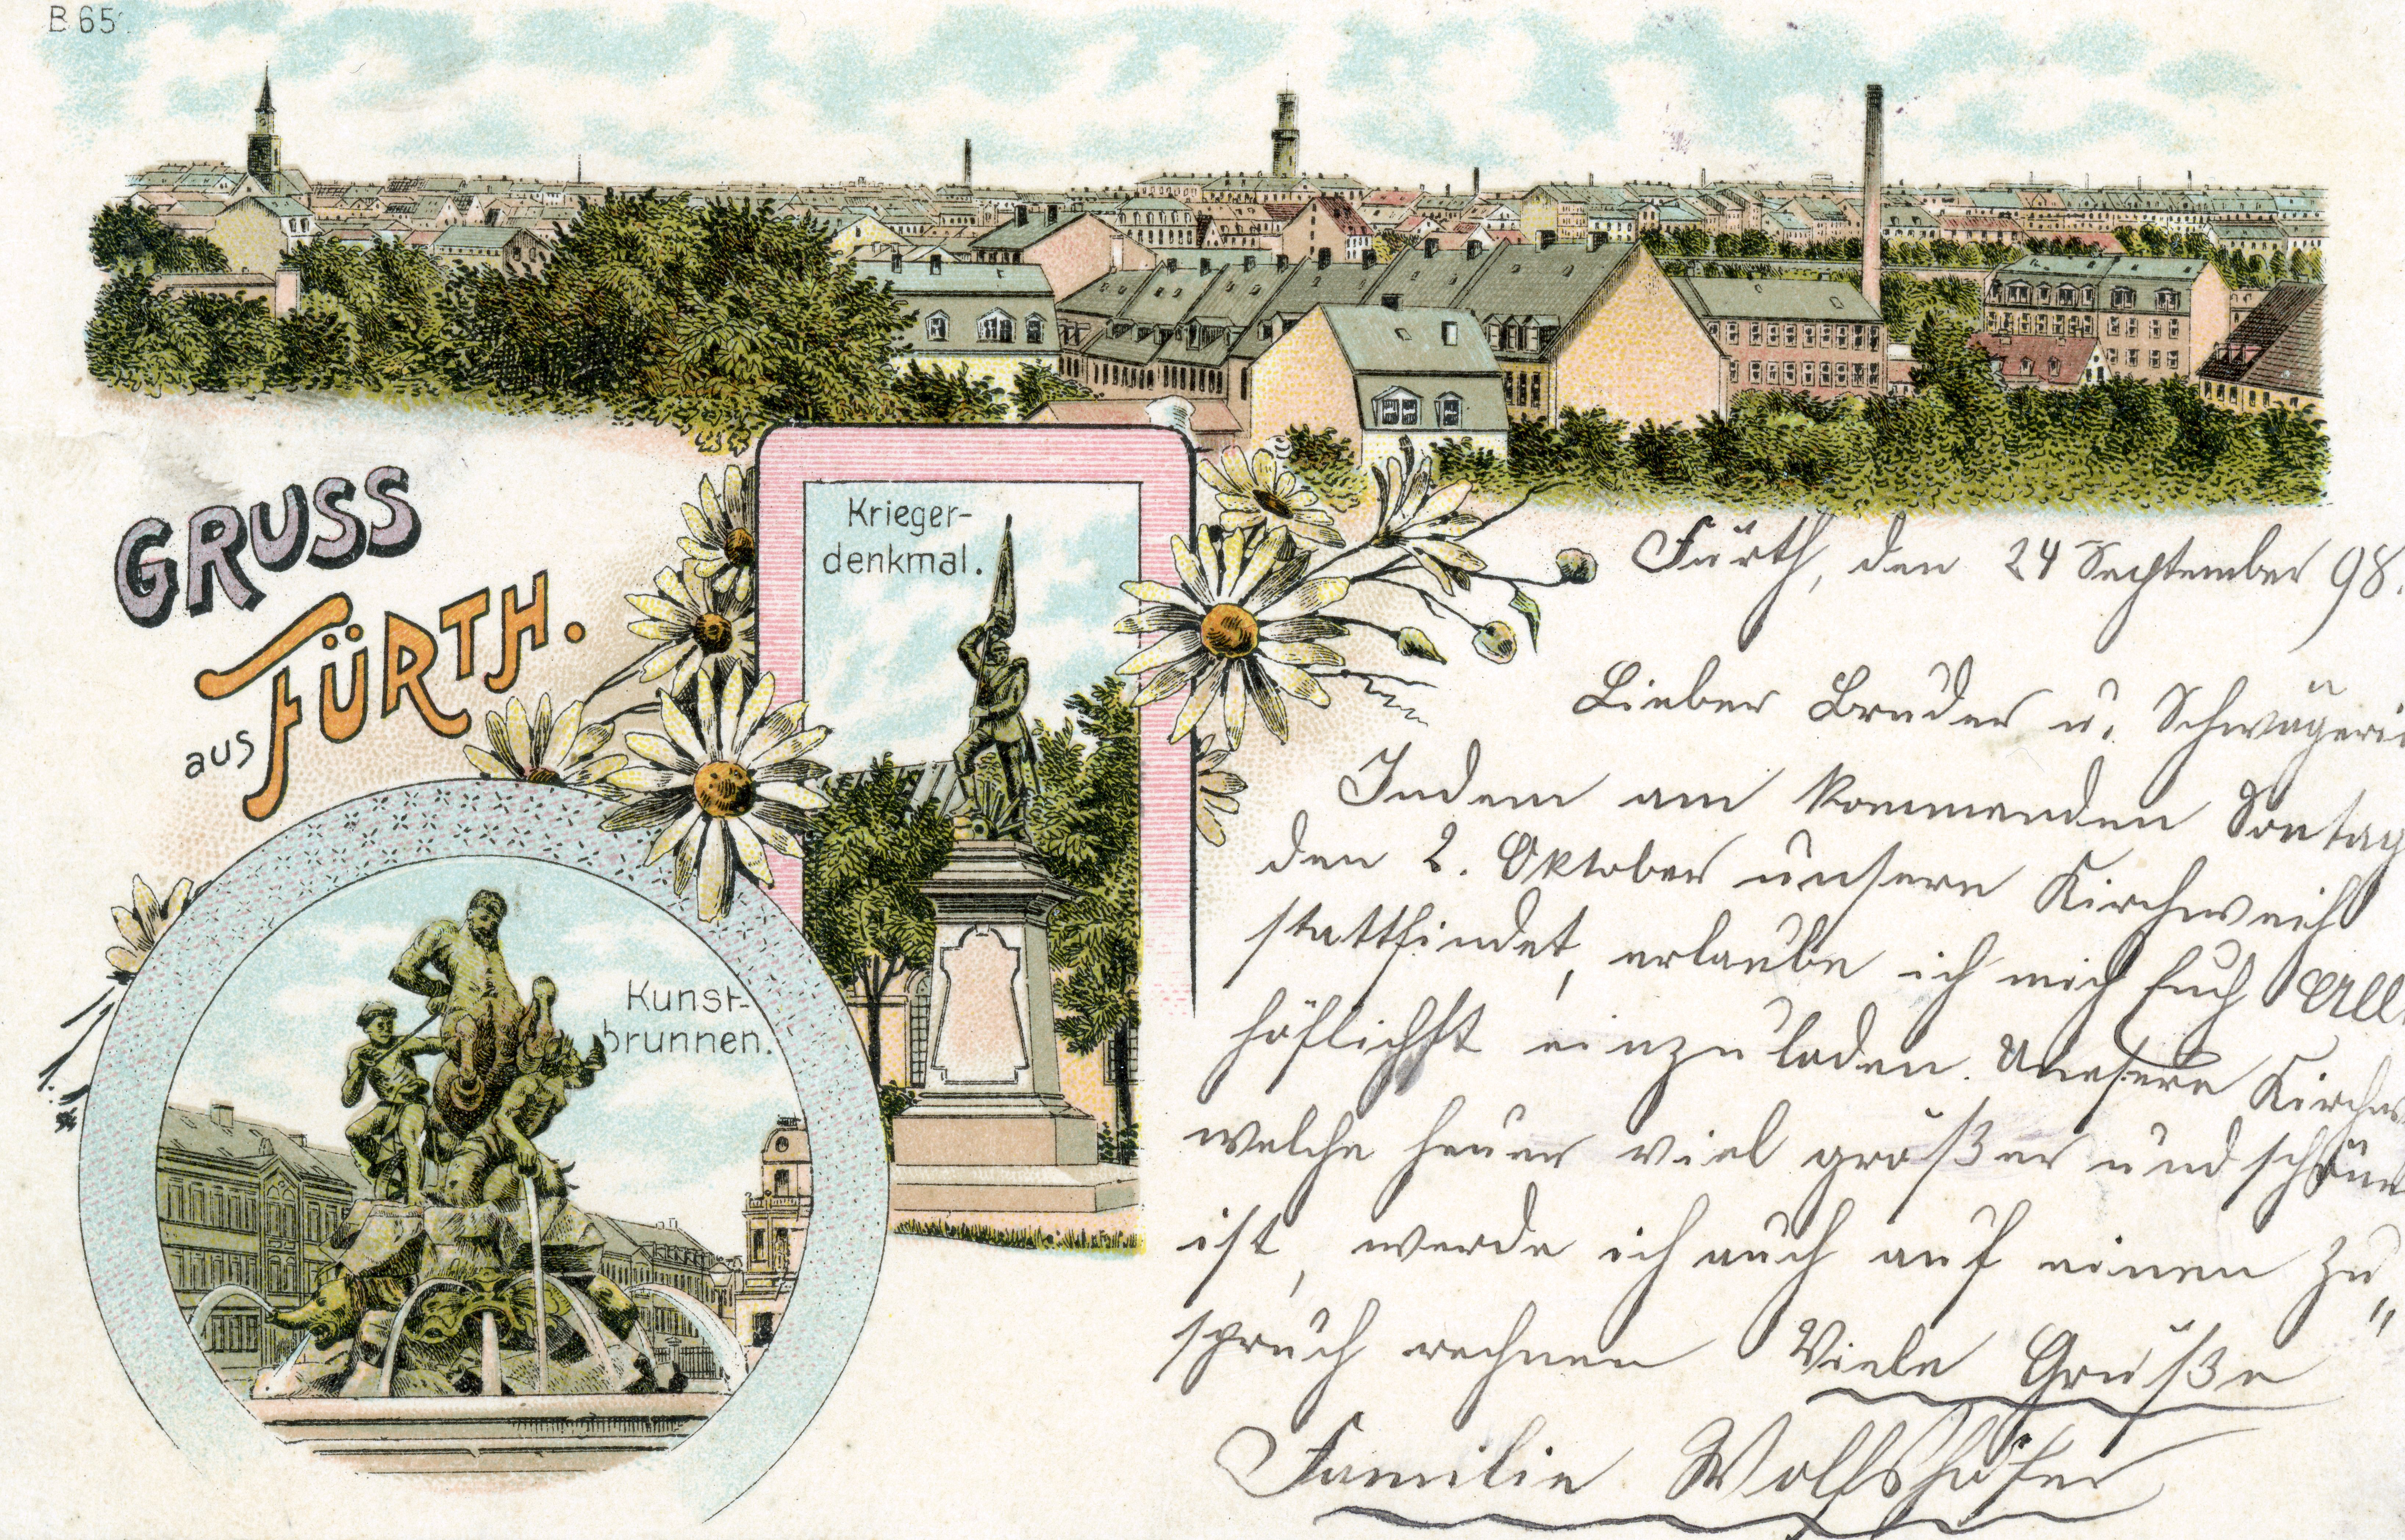 B 65.
GRUSS
aus FÜRTH.
Krieger-
denkmal.
Kunst-
brunnen.
Fürth, den 24 September 98.
Lieber Bruder u. Schwägeri
Indem am kommenden Sontag
den 2. Oktober unsere Kirchweih
stattfindet, erlaube ich mich Euch All
höflichst einzuladen. Unsere Kirchw
welche heuer viel größer und schöne
ist, werde ich auch auf einen Zu„
spruch rechnen Viele Grüße
Familie Wolfshöfer